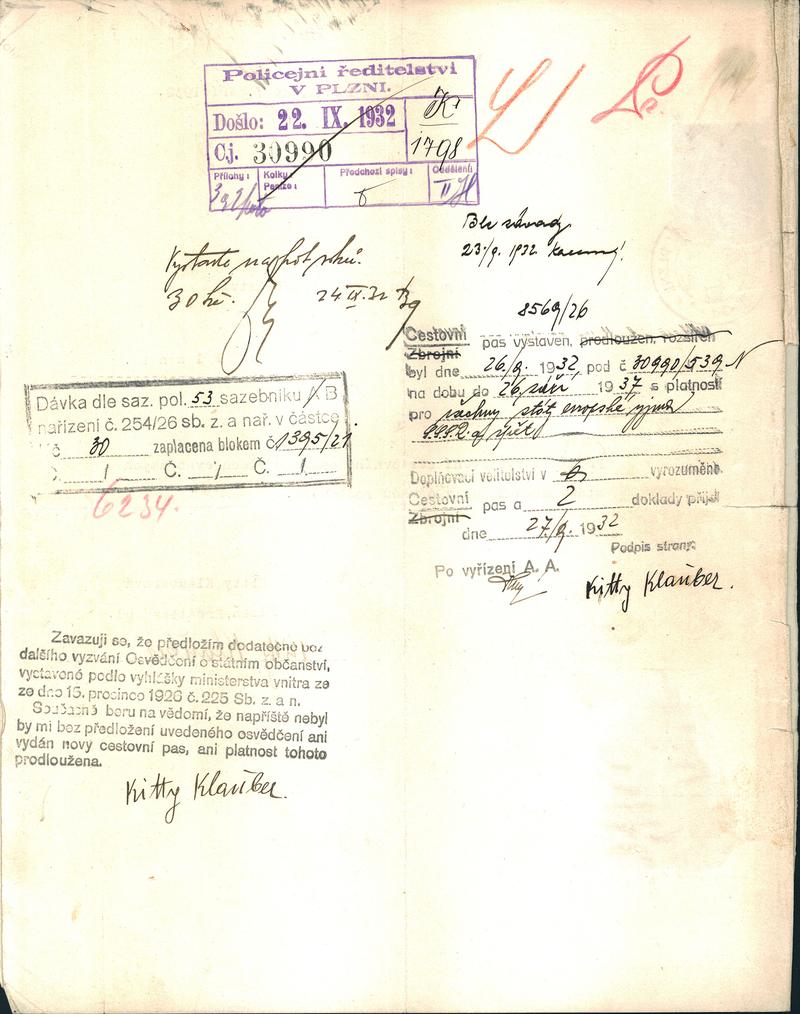 Policejní ředitelství
V PLZNI.
Došlo: 22. IX. 1932
K
1798
Čj. 30990
Přílohy:
Kolky:
Peníze:
Předchozí spisy:
Oddělení:
II
Bez závady
23./9. 1932
Vystavte na pět roků.
30 Kč.
24 IX. 32
8569/26
Cestovní
Zbrojní
pas vystaven, prodloužen, rozšířen
byl dne 26./9. 1932, pod č 30990/539 N
na dobu do 26. září 1937 s platností
pro všechny státy evropské vyjma
a zpět
Doplňovací velitelství v vyrozuměno
Cestovní
Zbrojní
pas a 2 doklady přijal
dne 27/9. 1932
Podpis strany:
Po vyřízení A. A.
Kitty Klauber.
Dávka dle saz. pol. 53 sazebníku B
nařízení č. 254/26 sb. z. a nař. v částce
Kč 30 zaplacena blokem č 1395/21
Č. / Č. / Č. /
6234.
Zavazuji se, že předložím dodatečně bez
dalšího vyzvání Osvědčení o státním občanství,
vystavené podle vyhlášky ministerstva vnitra ze
ze dne 15. prosince 1926 č. 225 Sb. z. a n.
Současně beru na vědomí, že napříště nebyl
by mi bez předložení uvedeného osvědčení ani
vydán nový cestovní pas, ani platnost tohoto
prodloužena.
Kitty Klauber.